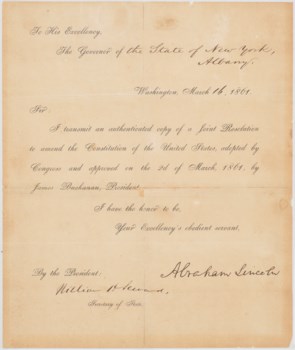 To His Excellency,
The Governor of the State of New York,
Albany.
Washington, March 16, 1861.
Sir:
I transmit an authenticated copy of a Joint Resolution
to amend the Constitution of the United States, adopted by
Congress and approved on the 2d of March, 1861, by
James Buchanan, President.
I have the honor to be,
Your Excellency's obedient servant,
By the President:
Abraham Lincoln
William H Seward,
Secretary of State.